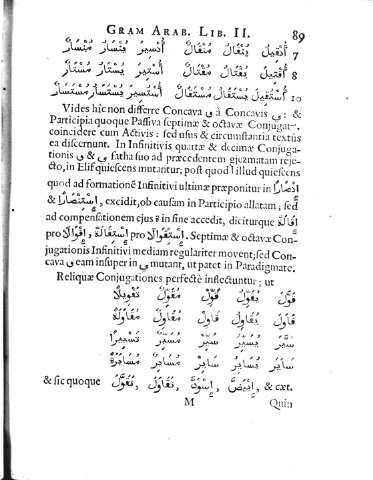 GRAM ARAB. LIB. II. 89
7 أُنْقِيلَ يُنْقَالُ مُنْقَالٌ أُنْسِيرَ يُنْسَارُ مُنْسَارٌ
8 أُقْتِيلَ يُقْتَالُ مُقْتَالٌ أُسْتِيرَ يُسْتَارُ مُسْتَارٌ
10 أُسْتُقِيلَ يُسْتَقَالُ مُسْتَقَالٌ أُسْتُسِيرَ يُسْتَسَارُ مُسْتَسَارٌ
Vides hic non differre Concava و à Concavis ي: &
Participia quoque Passiva septimæ & octavæ Conjugat-
coincidere cum Activis: sed usus & circumstantia textûs
ea discernunt. In Infinitivis quartæ & decimæ Conjuga-
tionis و & ي fatha suo ad præcedentem gjezmatam reje-
cto, in Elif quiescens mutantur; post quod ا illud quiescens
quod ad formationē Infinitivi ultimæ præponitur in
& إِسْتِنْصَارًا, excidit, ob causam in Participio allatam; sed
ad compensationem ejus ة in fine accedit, diciturque إِقَالَةً
pro إِقْوَالًا, إِسْتِقَالَةً pro إِسْتِقْوَالًا. Septimæ & octavæ Con-
jugationis Infinitivi mediam regulariter movent; sed Con-
cava و eam insuper in ي mutant, ut patet in Paradigmate.
Reliquæ Conjugationes perfectè inflectuntur: ut
قَوَّلَ يُقَوِّلُ قَوِّلْ مُقَوِّلٌ تَقْوِيلًا
قَاوَلَ يُقَاوِلُ قَاوِلْ مُقَاوِلٌ مُقَاوَلَةً
سَيَّرَ يُسَيِّرُ سَيِّرْ مُسَيِّرٌ تَسْيِيرًا
سَايَرَ يُسَايِرُ سَايِرْ مُسَايِرٌ مُسَايَرَةً
& sic quoque تَقَوَّلَ, تَقَاوَلَ, إِسْوَدَّ, إِبْيَضَّ, & cæt.
M Quia